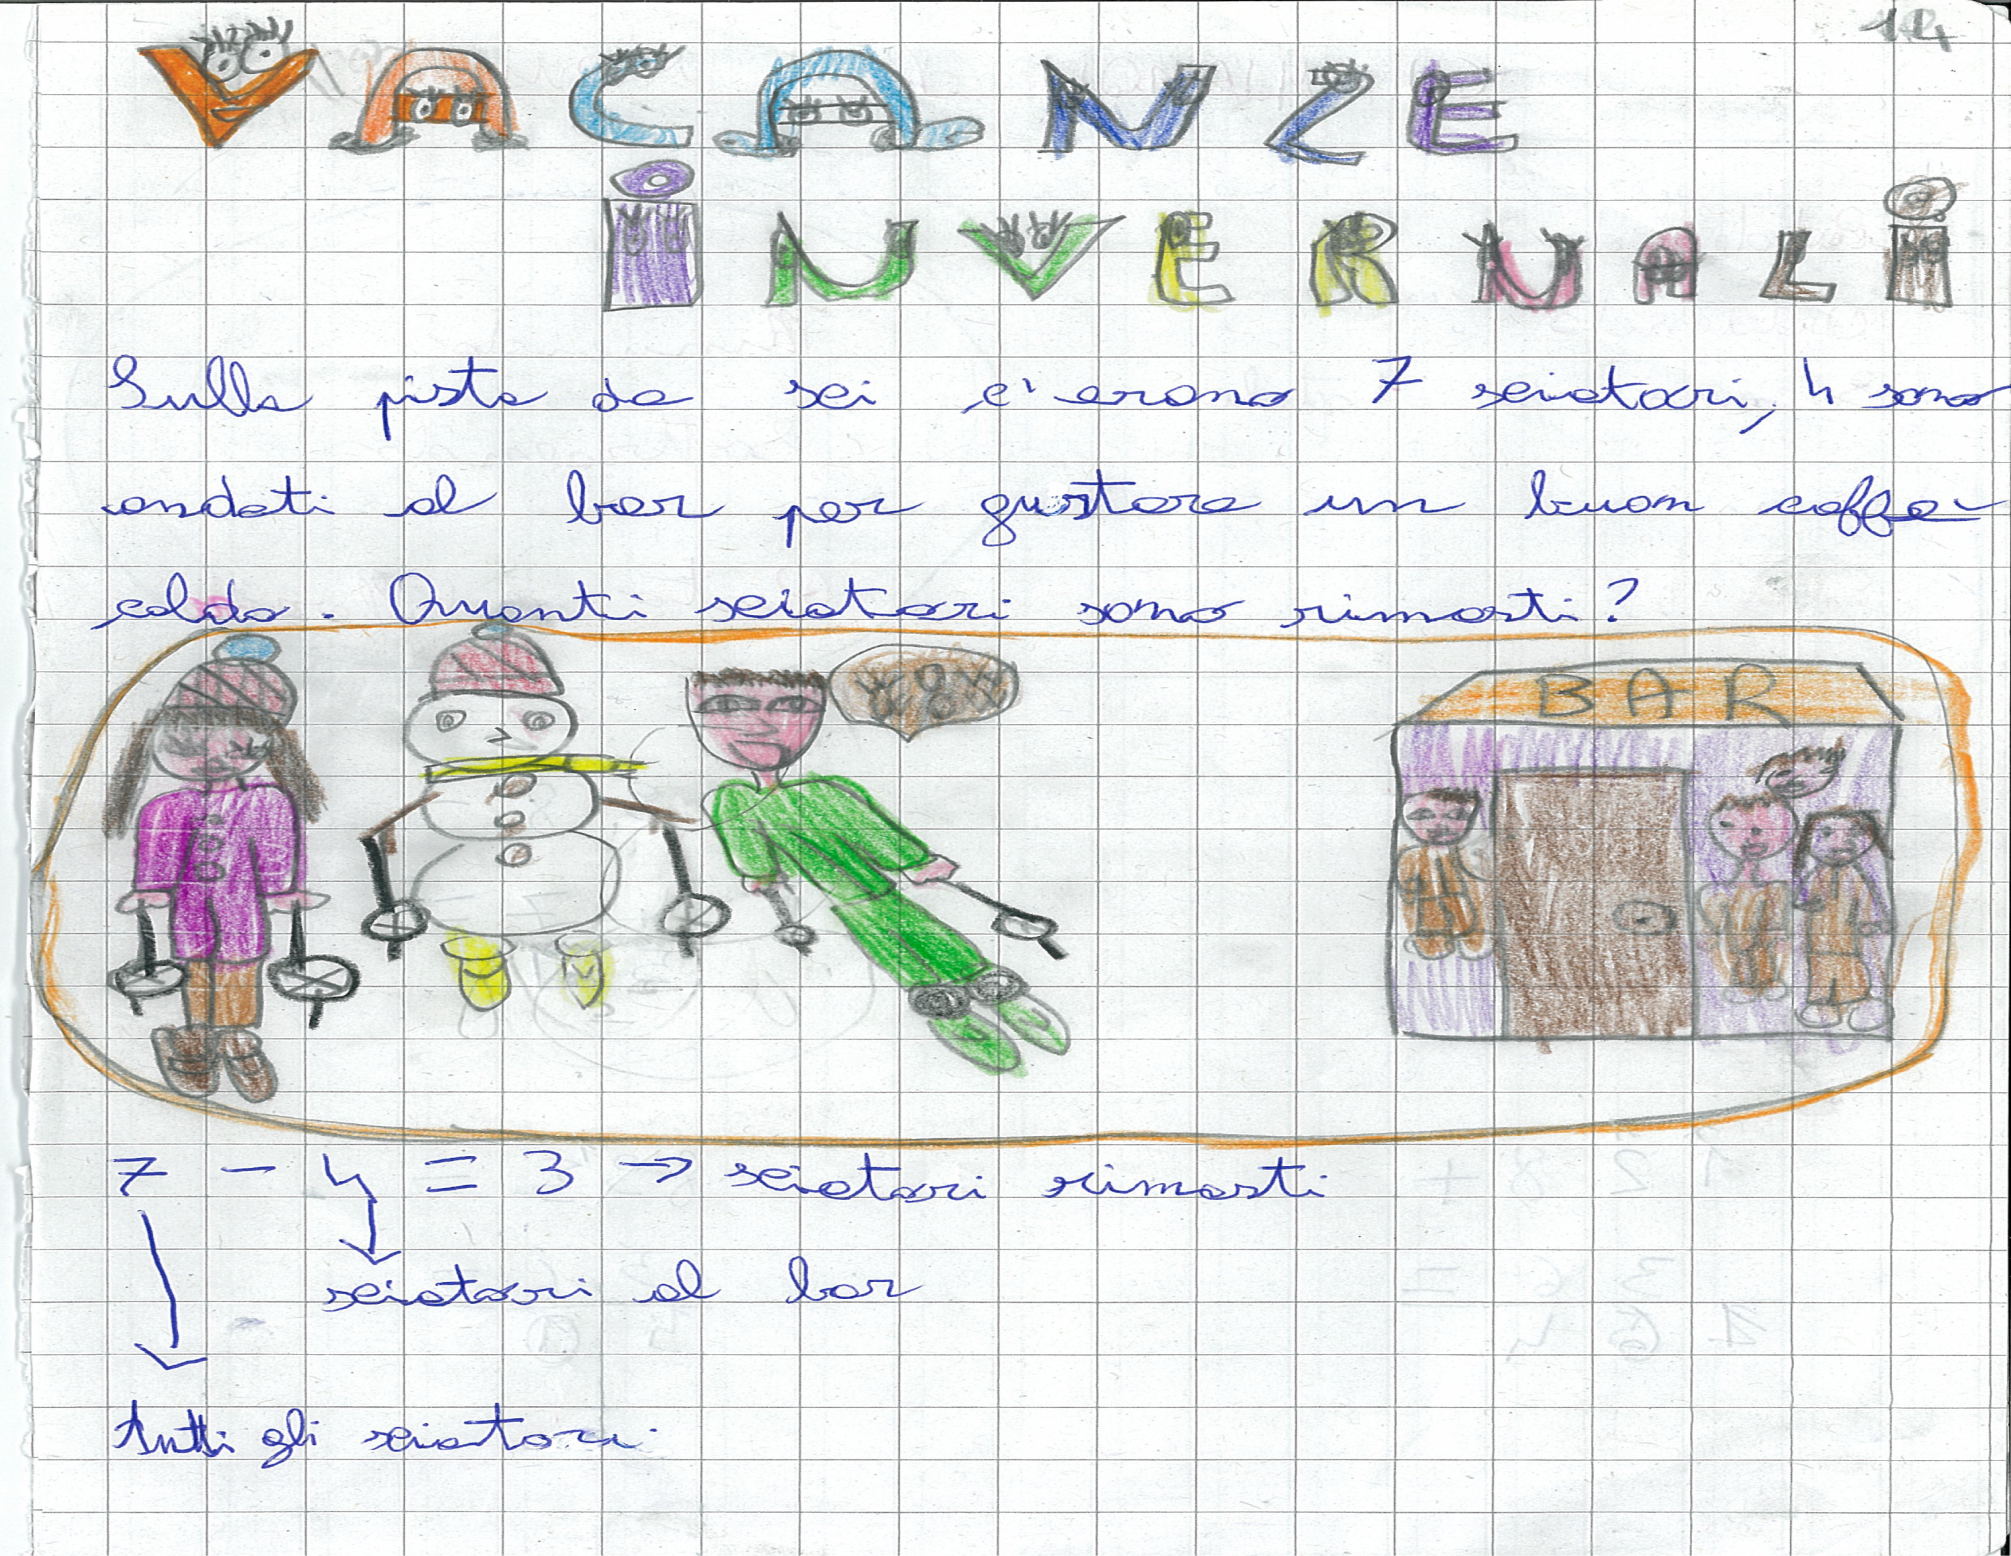 14
VACANZE
iNVERNALi
Sulla pista da sci c'erano 7 sciatori, 4 sono
andati al bar per gustare un buon caffè
caldo. Quanti sciatori sono rimasti?
BAR
7 - 4 = 3 → sciatori rimasti
sciatori al bar
tutti gli sciatori